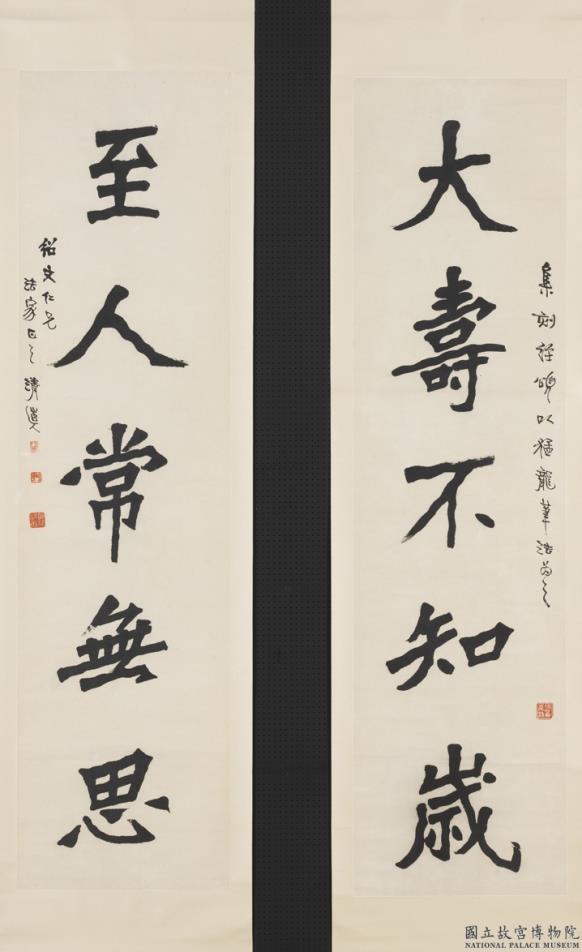 大壽不知歲
集刻經頌以猛龍筆法爲之
至人常無思
紹文仁兄
法家正之 清道人
國立故宮博物院
NATIONAL PALACE MUSEUM